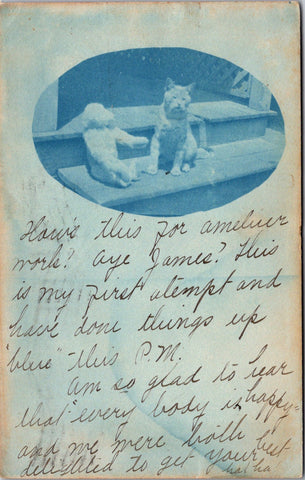 How's this for ameliur
work? Aye James? This
is my first atempt and
have done things up
"blue" this P.M.
Am so glad to hear
that every body is happy-
and we were both
delighted to get your best
ha! ha!